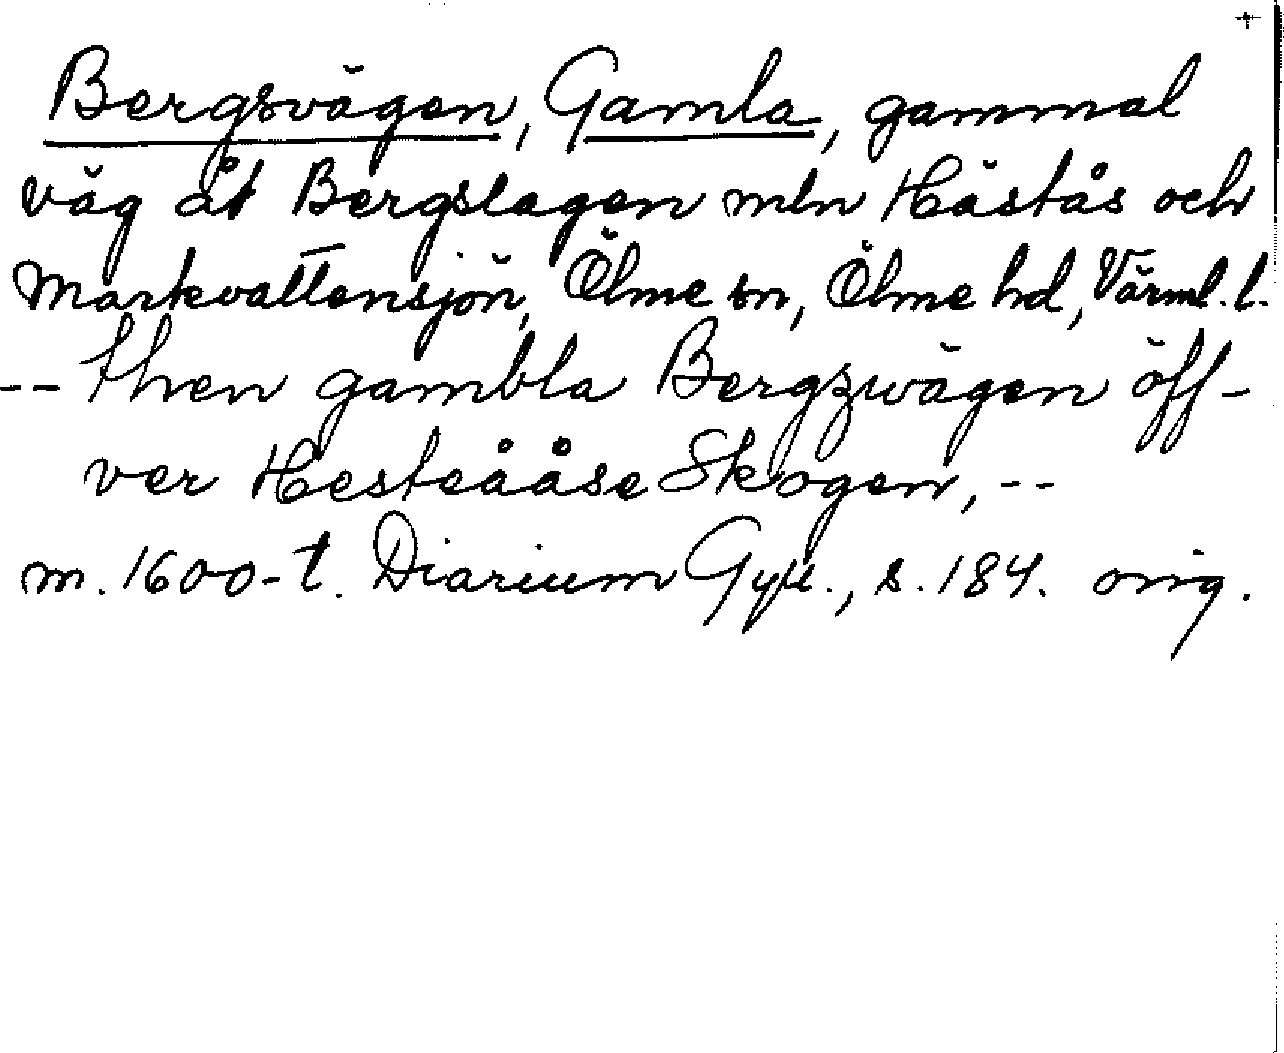 +
Bergsvägen, Gamla, gammal
väg åt Bergslagen mln Hästås och
Markvattensjön, Ölme sn, Ölme hd, Värml. l.
-- then gambla Bergzwägen öff-
ver Hesteååse Skogen, --
m. 1600-t. Diarium Gyll., s. 184. orig.